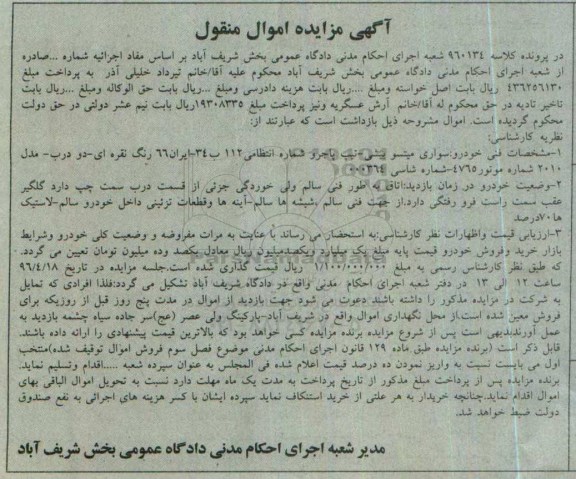 آگهی مزایده اموال منقول
در پرونده کلاسه ۹۶۰۱۳۴ شعبه اجرای احکام مدنی دادگاه عمومی بخش شریف آباد بر اساس مفاد اجرائیه شماره ...صادره
از شعبه اجرای احکام مدنی دادگاه عمومی بخش شریف آباد محکوم علیه آقا/خانم تیرداد خلیلی آذر به پرداخت مبلغ
۴۳۶۲۵۶۱۳۰ ریال بابت اصل خواسته ومبلغ ....ریال بابت هزینه دادرسی ومبلغ ...ریال بابت حق الوکاله ومبلغ ...ریال بابت
تاخیر تادیه در حق محکوم له آقا/خانم آرش عسگریه ونیز پرداخت مبلغ ۱۹۳۰۸۳۳۵ریال بابت نیم عشر دولتی در حق دولت
محکوم گردیده است. اموال مشروحه ذیل بازداشت است که عبارتند از:
نظریه کارشناسی:
۱-مشخصات فنی خودرو:سواری میتسو بیشی-تیپ پاجرو شماره انتظامی۱۱۲ ب۳۴-ایران۶۶ رنگ نقره ای-دو درب- مدل
۲۰۱۰ شماره موتور۴۷۶۵-شماره شاسی
۲-وضعیت خودرو در زمان بازدید:اتاق به طور فنی سالم ولی خوردگی جزئی از قسمت درب سمت چپ دارد گلگیر
عقب سمت راست فرو رفتگی دارد.از جهت فنی سالم ،شیشه ها سالم-آینه ها وقطعات تزئینی داخل خودرو سالم-لاستیک
ها۷۰درصد
۳-ارزیابی قیمت واظهارات نظر کارشناسی:به استحضار می رساند با عنایت به مراتب مفروضه و وضعیت کلی خودرو وشرایط
بازار خرید وفروش خودرو قیمت پایه مبلغ یک میلیارد ویکصدمیلیون ریال معادل یکصد وده میلیون تومان تعیین می گردد.
که طبق نظر کارشناس رسمی به مبلغ ۱/۱۰۰/۰۰۰/۰۰۰ ریال قیمت گذاری شده است.جلسه مزایده در تاریخ ۹۶/۴/۱۸
ساعت ۱۲ الی ۱۳ در دفتر شعبه اجرای احکام مدنی واقع در دادگاه شریف آباد تشکیل می گردد:فلذا افرادی که تمایل
به شرکت در مزایده مذکور را داشته باشند دعوت می شود جهت بازدید از اموال در مدت پنج روز قبل از روزیکه برای
فروش معین شده است.از محل نگهداری اموال واقع در شریف آباد-پارکینگ ولی عصر (عج)سر جاده سیاه چشمه بازدید به
عمل آورند.بدیهی است پس از شروع مزایده برنده مزایده کسی خواهد بود که بالاترین قیمت پیشنهادی را ارائه داده باشند.
قابل ذکر است (برنده مزایده طبق ماده ۱۲۹ قانون اجرای احکام مدنی موضوع فصل سوم فروش اموال توقیف شده)منتخب
اول می بایست نسبت به واریز نمودن ده درصد قیمت اعلام شده فی المجلس به عنوان سپرده شعبه .....اقدام وتسلیم نماید.
برنده مزایده پس از پرداخت مبلغ مذکور از تاریخ پرداخت به مدت یک ماه مهلت دارد نسبت به تحویل اموال الباقی بهای
اموال اقدام نماید.چنانچه خریدار به هر علتی از خرید استنکاف نماید سپرده ایشان با کسر هزینه های اجرائی به نفع صندوق
دولت ضبط خواهد شد.
مدیر شعبه اجرای احکام مدنی دادگاه عمومی بخش شریف آباد